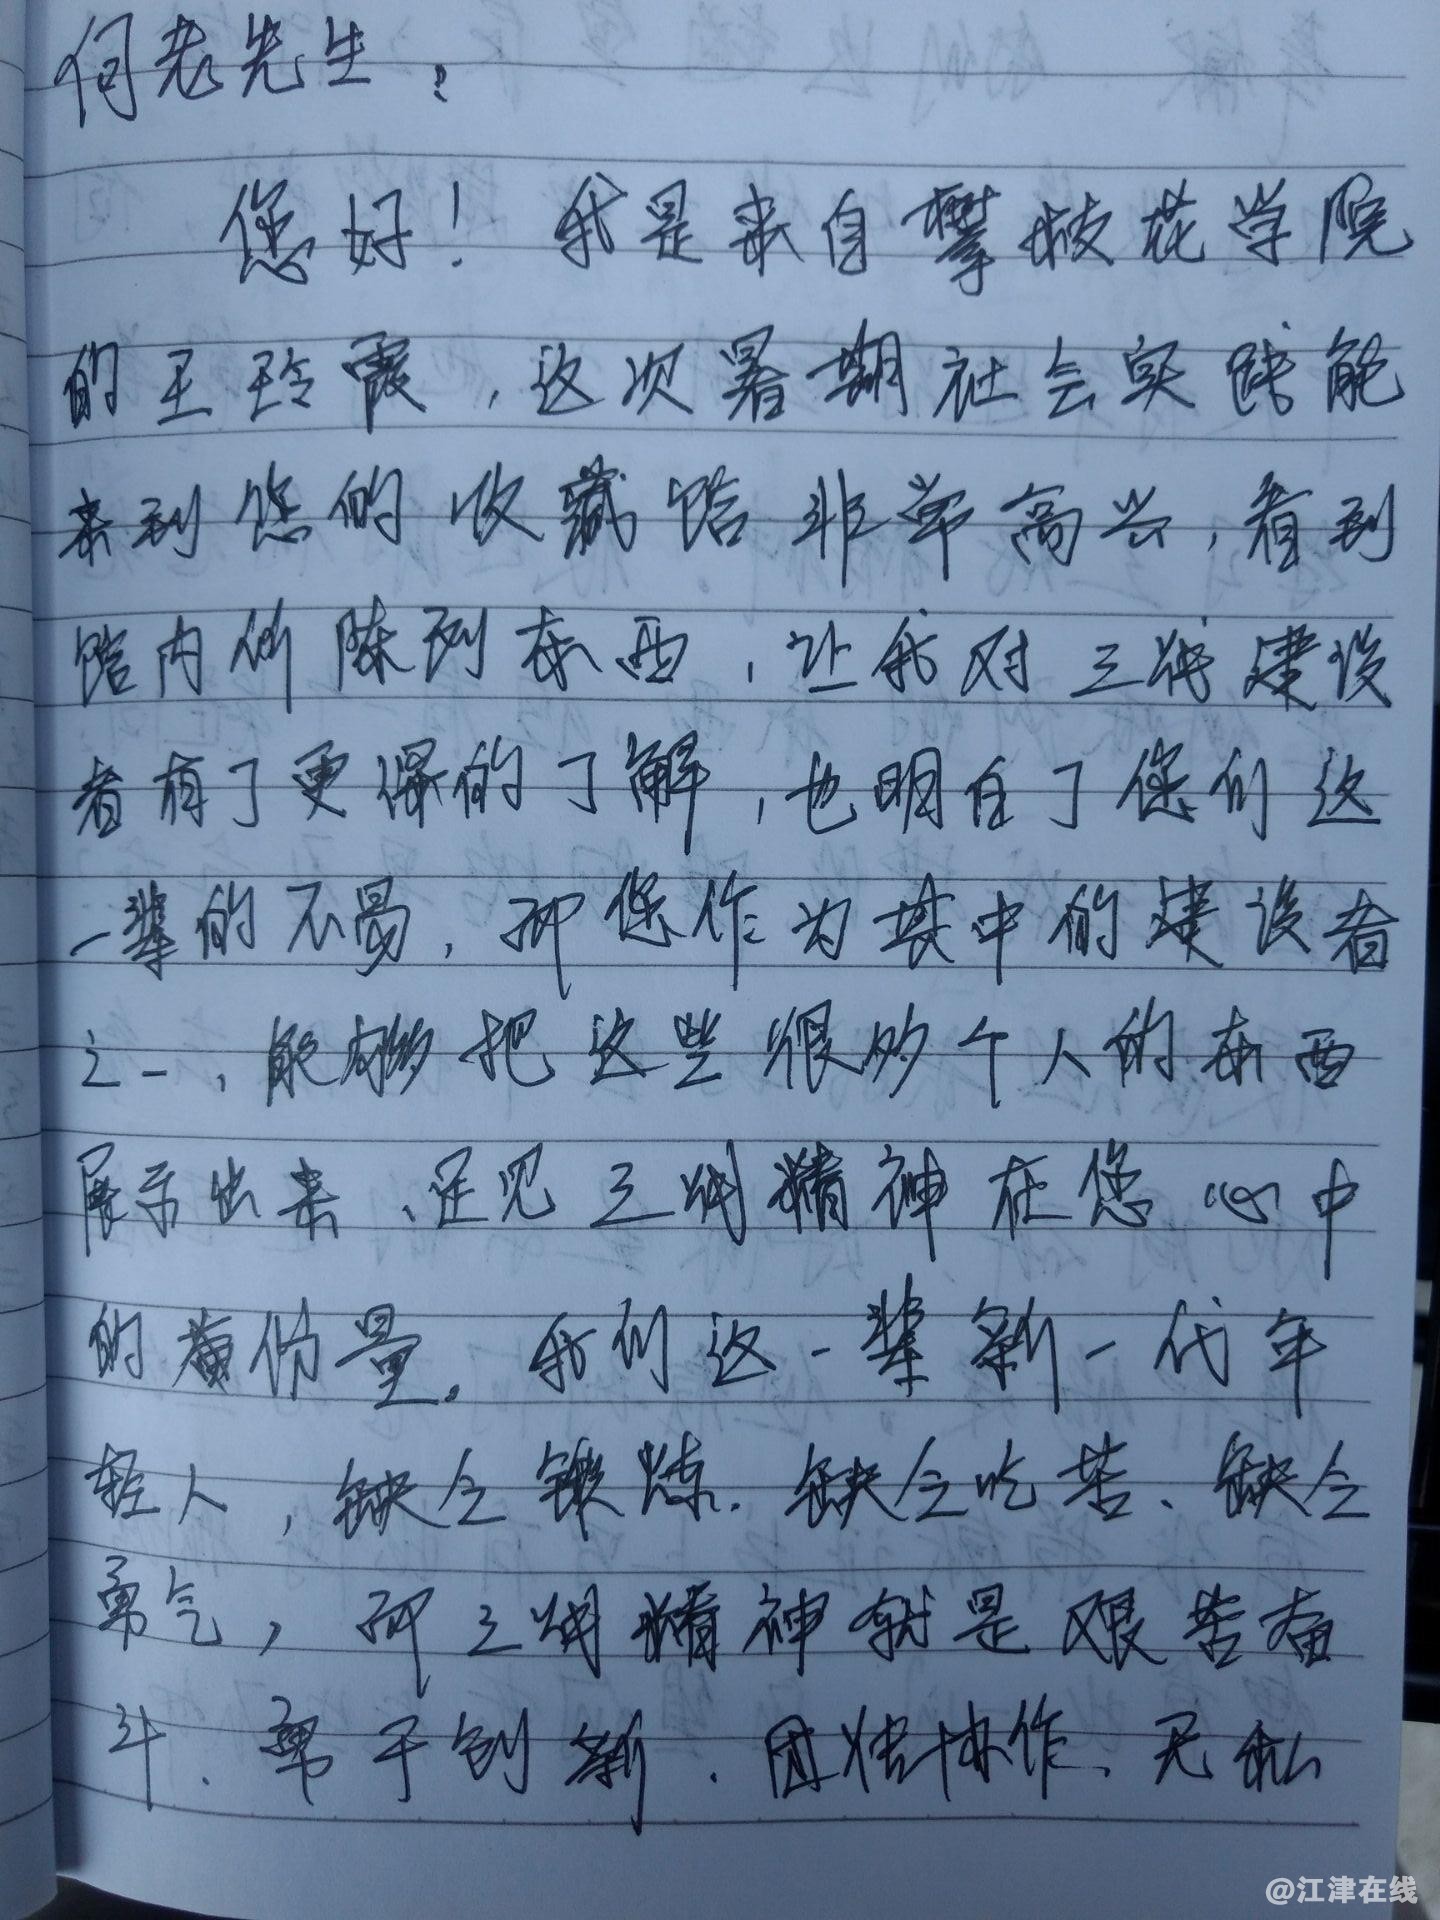 何老先生：
您好！我是来自攀枝花学院
的王玲霞，这次暑期社会实践能
来到您的收藏馆非常高兴，看到
馆内所陈列东西，让我对三线建设
者有了更深的了解，也明白了您们这
一辈的不易，而您作为其中的建设者
之一，能够把这些很多个人的东西
展示出来，足见三线精神在您心中
的份量。我们这一辈新一代年
轻人，缺乏锻炼、缺乏吃苦、缺乏
勇气，而三线精神就是艰苦奋
斗、勇于创新、团结协作、无私
@江津在线